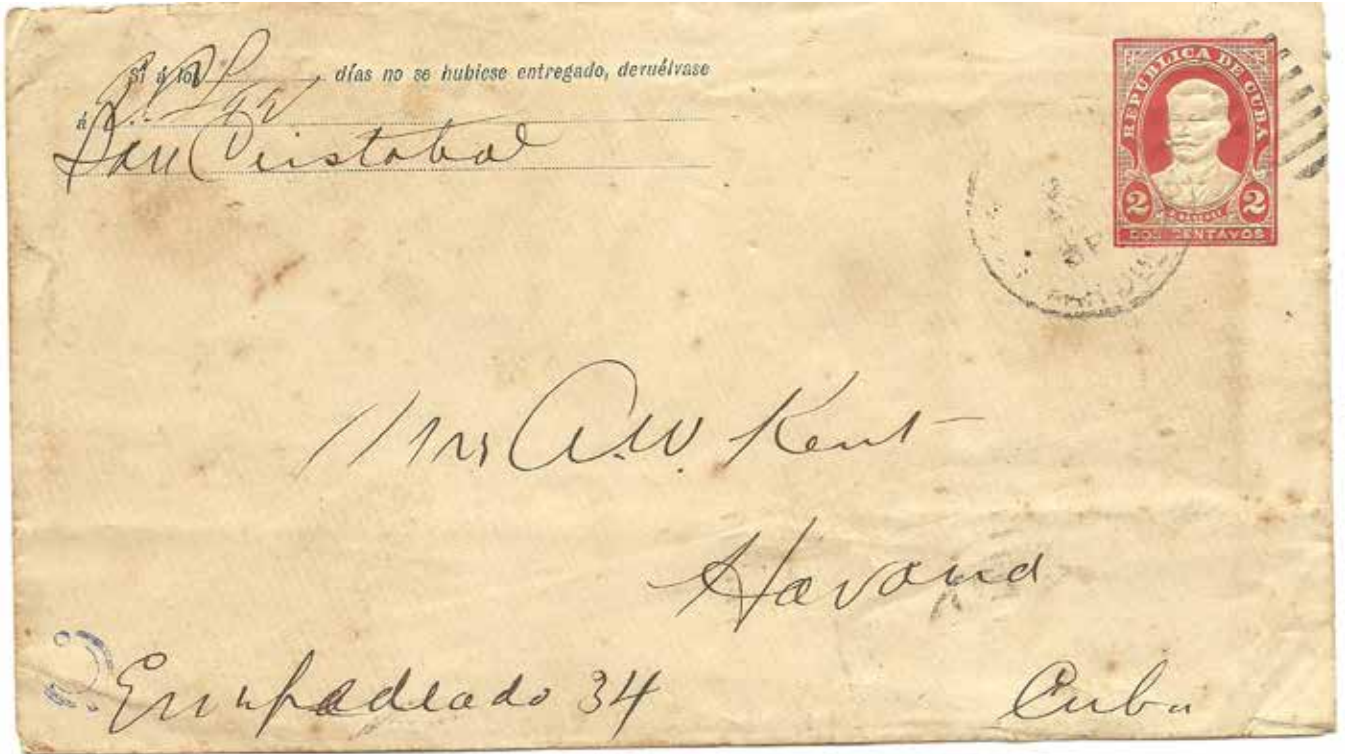 Si á los días no se hubiese entregado, devuélvase
á
San Cristobal
REPUBLICA DE CUBA
2 2
DOS CENTAVOS
Mrs A.W. Kent
Havana
Empedrado 34 Cuba